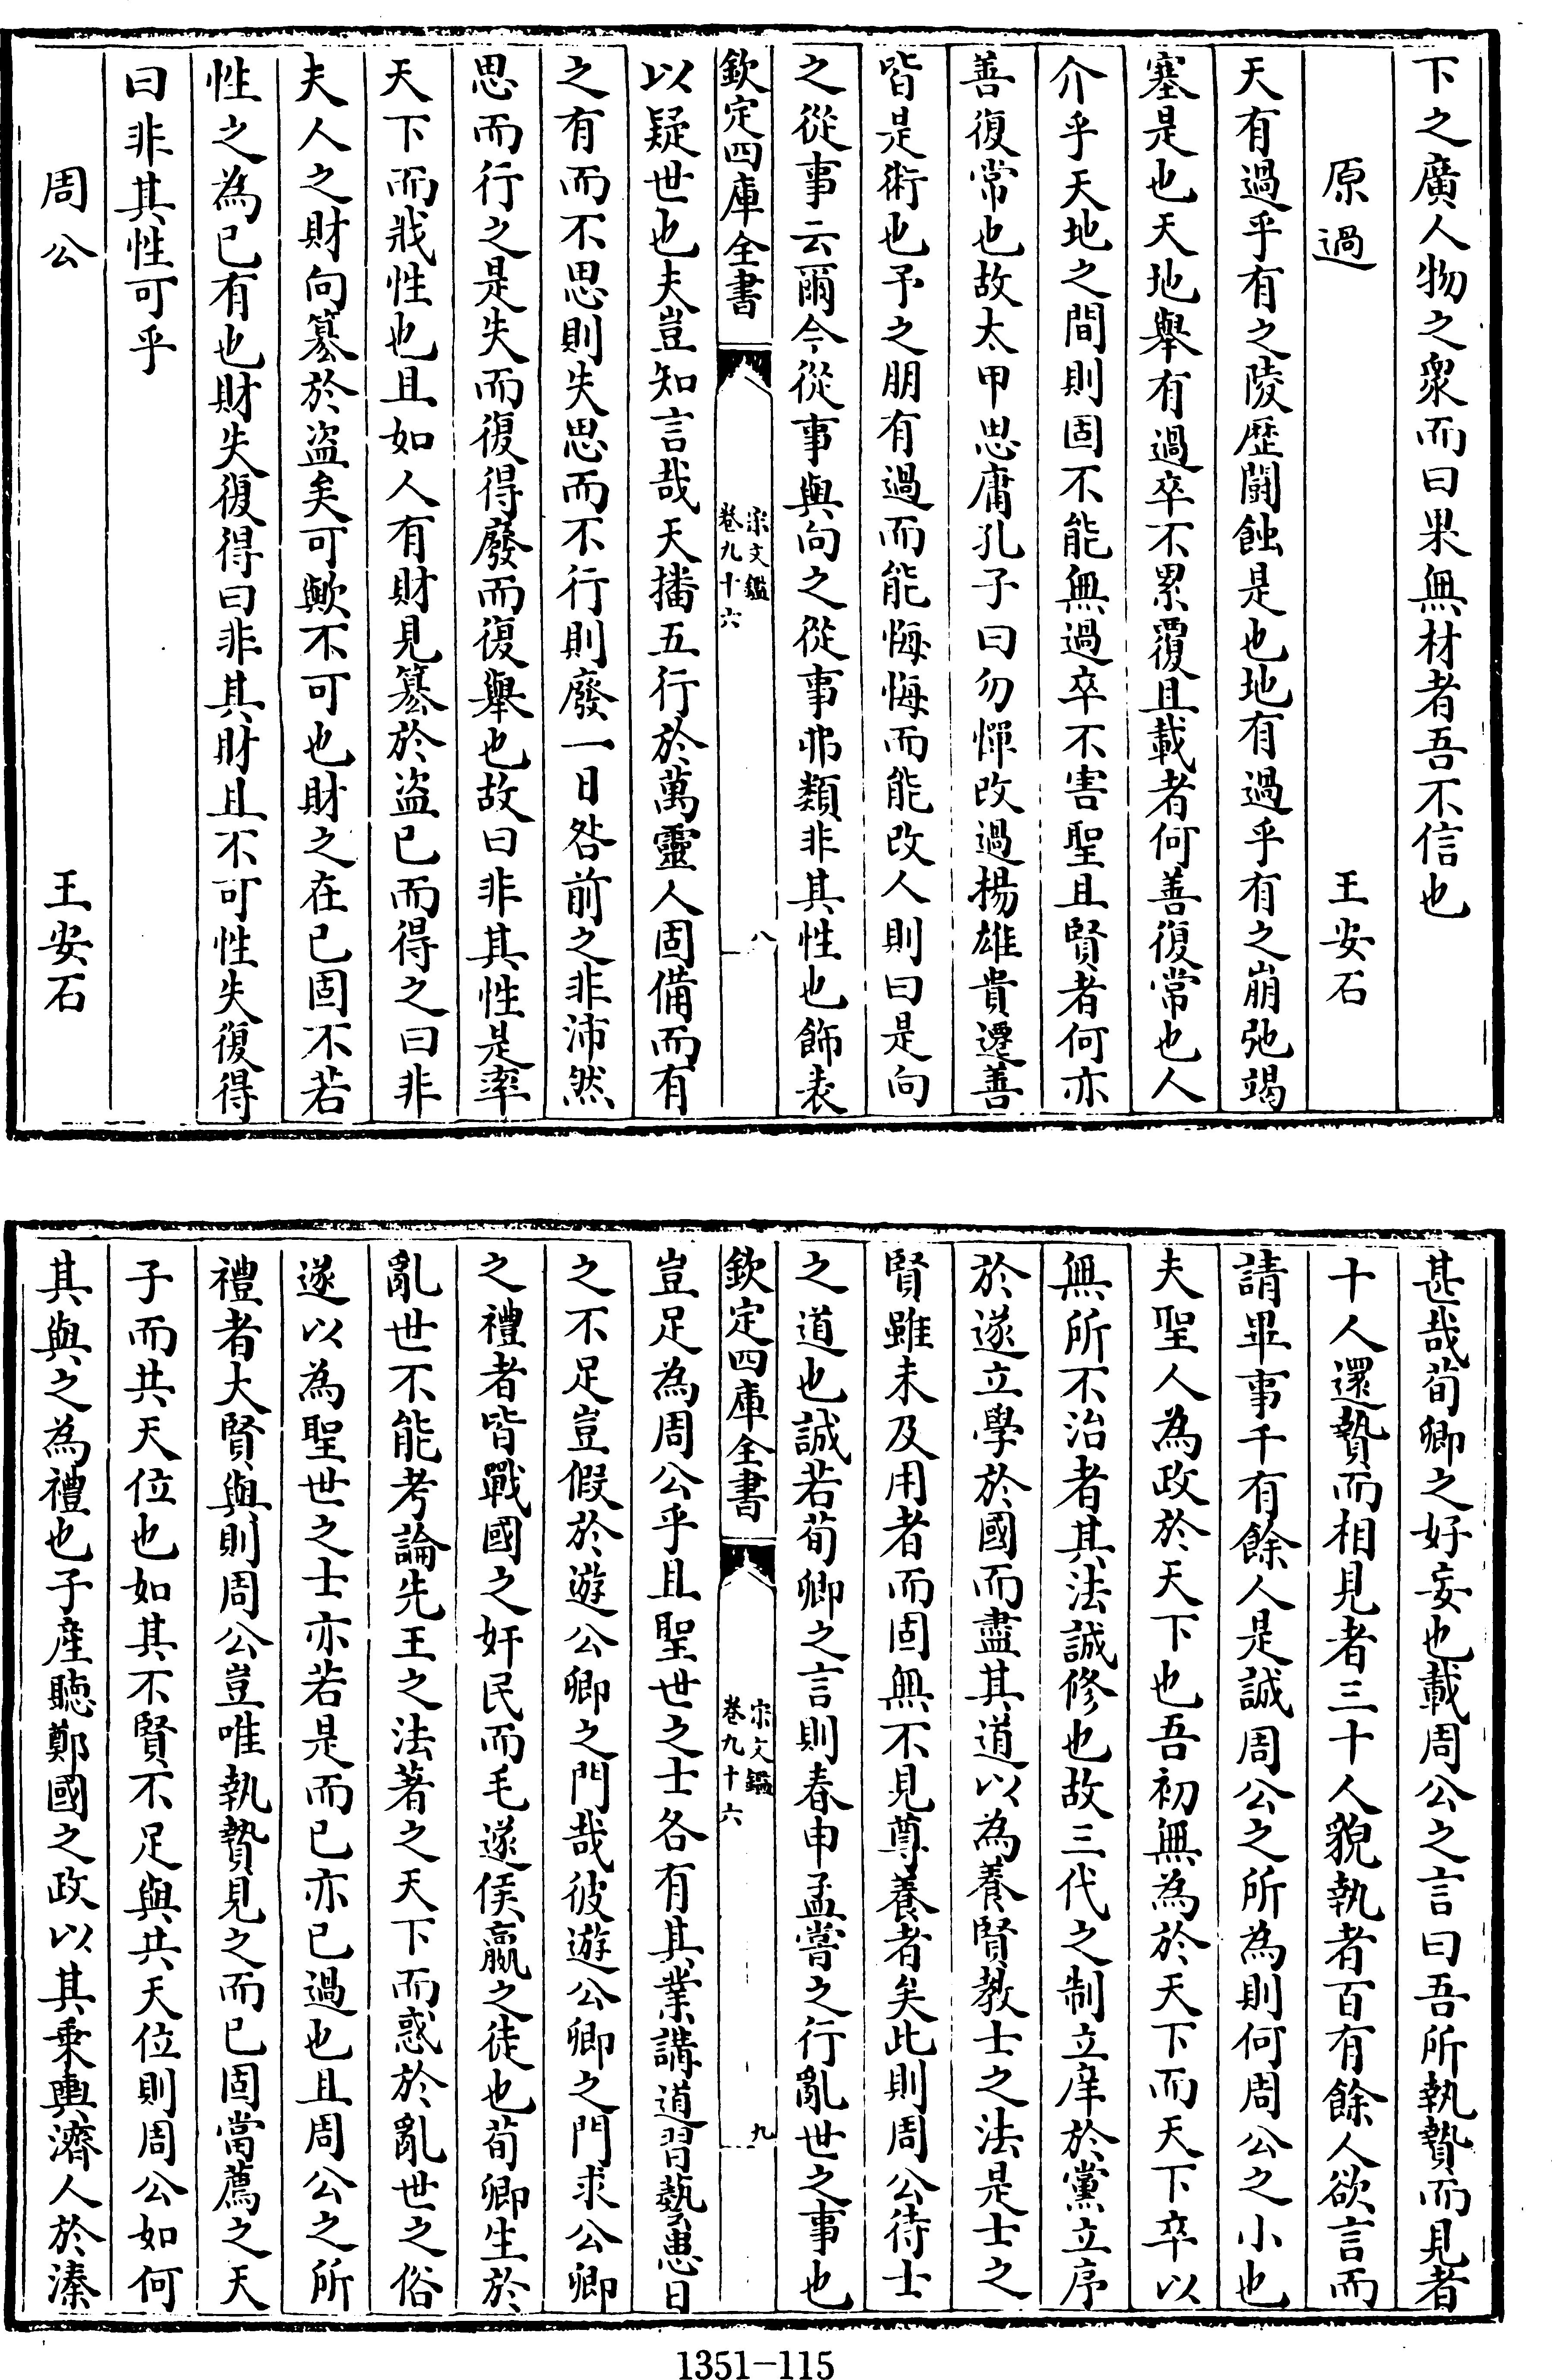 下之廣人物之衆而曰果無材者吾不信也
原過 王安石
天有過乎有之陵歷鬭蝕是也地有過乎有之崩弛竭
塞是也天地舉有過卒不累覆且載者何善復常也人
介乎天地之間則固不能無過卒不害聖且賢者何亦
善復常也故太甲思庸孔子曰勿憚改過楊雄貴遷善
皆是術也予之朋有過而能悔悔而能改人則曰是向
之從事云爾今從事與向之從事弗類非其性也飾表
欽定四庫全書 宋文鑑 卷九十六 八
以疑世也夫豈知言哉天播五行於萬靈人固備而有
之有而不思則失思而不行則廢一日咎前之非沛然
思而行之是失而復得廢而復舉也故曰非其性是率
天下而戕性也且如人有財見篡於盜已而得之曰非
夫人之財向篡於盜矣可歟不可也財之在已固不若
性之為已有也財失復得曰非其財且不可性失復得
曰非其性可乎
周公 王安石
甚哉荀卿之好妄也載周公之言曰吾所執贄而見者
十人還贄而相見者三十人貌執者百有餘人欲言而
請畢事千有餘人是誠周公之所為則何周公之小也
夫聖人為政於天下也吾初無為於天下而天下卒以
無所不治者其法誠修也故三代之制立庠於黨立序
於遂立學於國而盡其道以為養賢教士之法是士之
賢雖未及用者而固無不見尊養者矣此則周公待士
之道也誠若荀卿之言則春申孟嘗之行亂世之事也
欽定四庫全書 宋文鑑 卷九十六 九
豈足為周公乎且聖世之士各有其業講道習藝患日
之不足豈假於遊公卿之門哉彼遊公卿之門求公卿
之禮者皆戰國之奸民而毛遂侯嬴之徒也荀卿生於
亂世不能考論先王之法著之天下而惑於亂世之俗
遂以為聖世之士亦若是而已亦已過也且周公之所
禮者大賢與則周公豈唯執贄見之而已固當薦之天
子而共天位也如其不賢不足與共天位則周公如何
其與之為禮也子產聽鄭國之政以其乗輿濟人於溱
1351-115